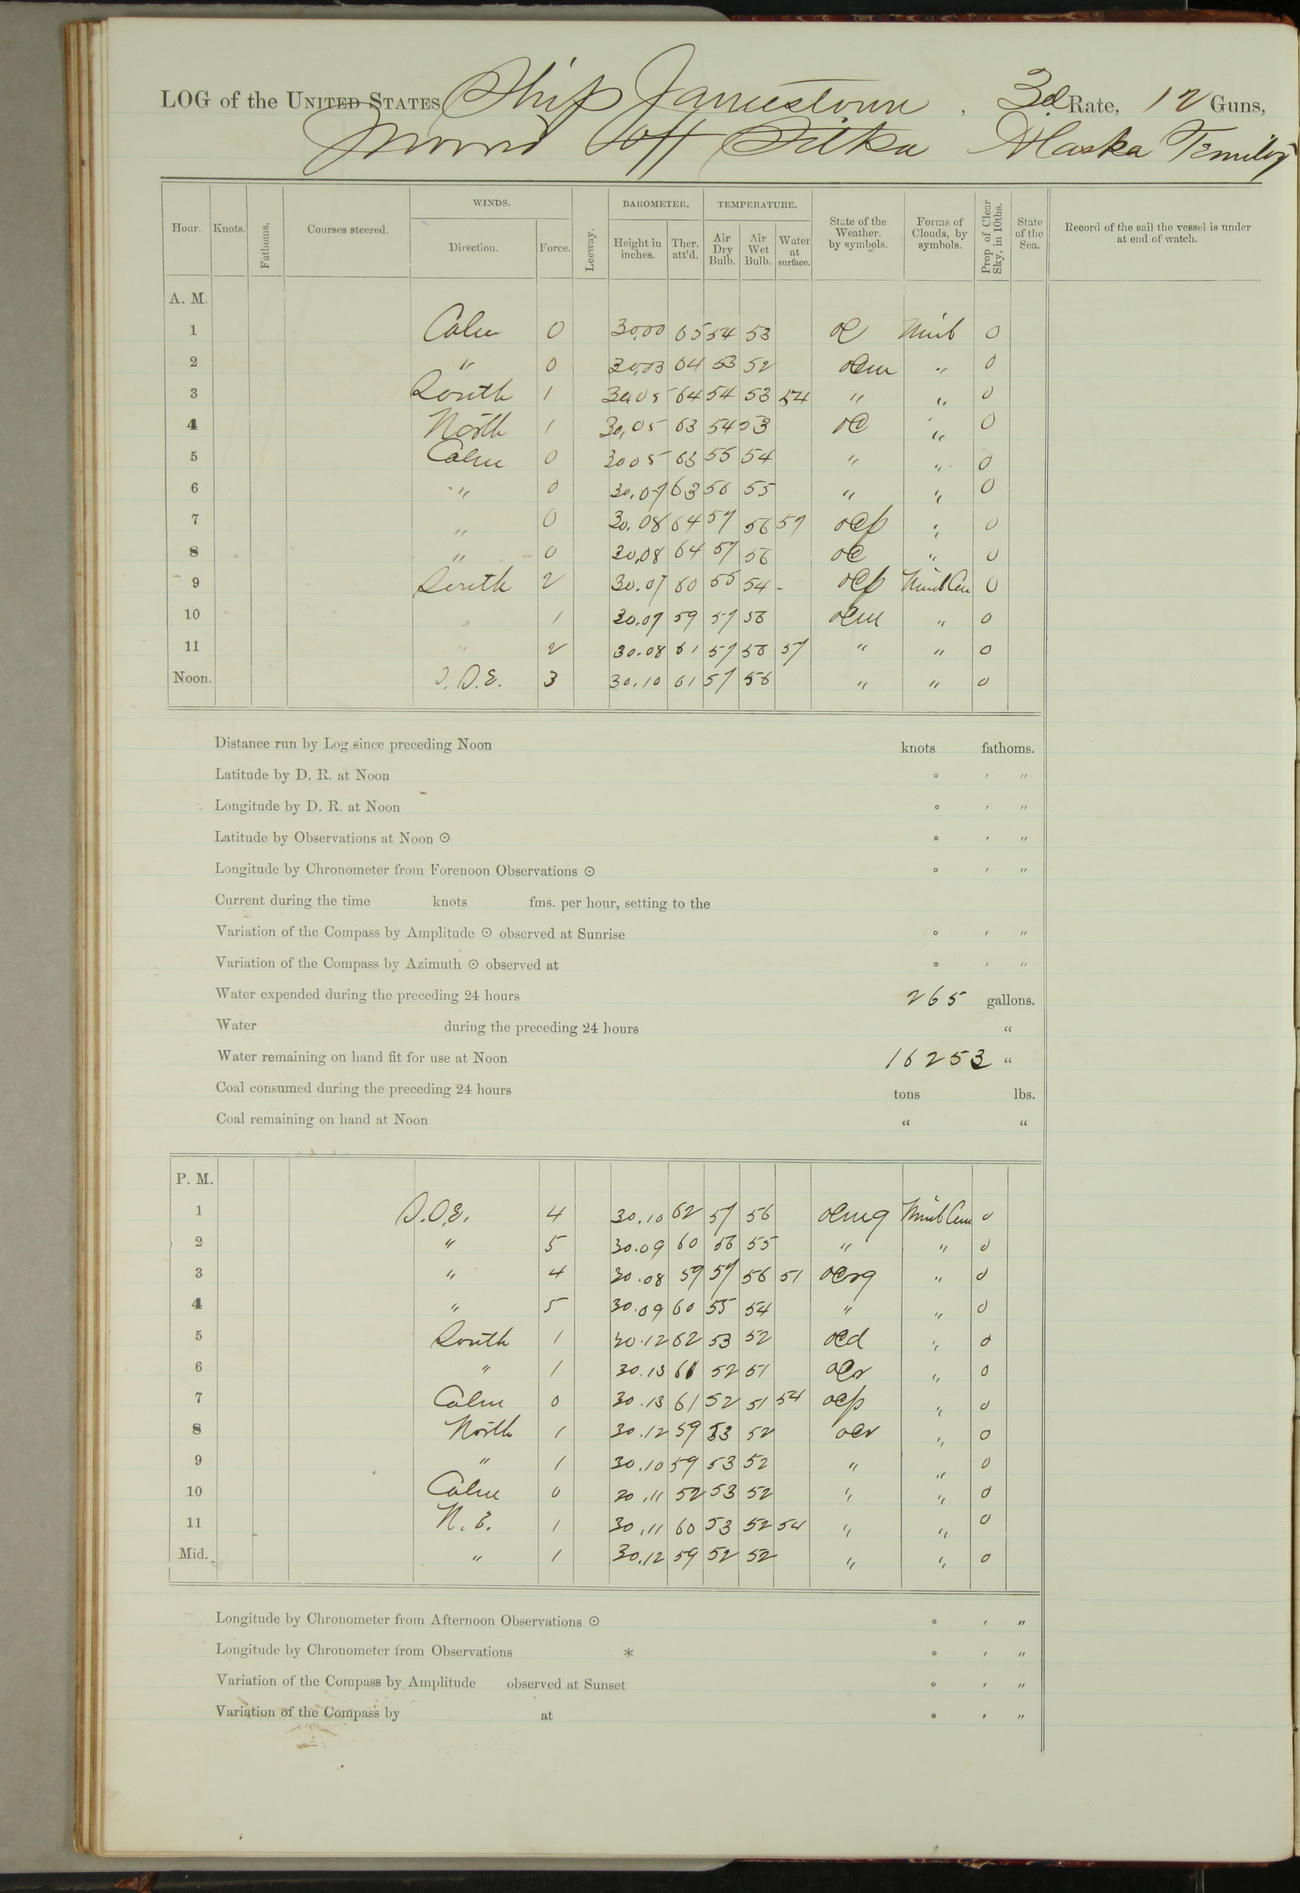 LOG of the UNITED STATES Ship Jamestown, 3d Rate, 12 Guns,
Moored off Sitka Alaska Territory
Hour. Knots. Fathoms. Courses steered. WINDS. Direction. Force. Leeway. BAROMETER. Height in inches. Ther. att'd. TEMPERATURE. Air Dry Bulb. Air Wet Bulb. Water at surface. State of the Weather. by symbols. Forms of Clouds, by symbols. Prop. of Clear Sky, in 10ths. State of the Sea. Record of the sail the vessel is under at end of watch.
A. M.
1 Calm 0 30.00 65 54 53 oc Nimb 0
2 " 0 30.03 64 53 52 ocm " 0
3 South 1 30.05 64 54 53 54 " " 0
4 North 1 30.05 63 54 53 oc " 0
5 Calm 0 30.05 63 55 54 " " 0
6 " 0 30.07 63 56 55 " " 0
7 " 0 30.08 64 57 56 57 ocp " 0
8 " 0 30.08 64 57 56 oc " 0
9 South 2 30.07 60 55 54 - ocp Nimb Cum 0
10 " 1 30.07 59 57 56 ocm " 0
11 " 2 30.08 61 57 56 57 " " 0
Noon. S.S.E. 3 30.10 61 57 56 " " 0
Distance run by Log since preceding Noon knots fathoms.
Latitude by D. R. at Noon ° ′ ″
Longitude by D. R. at Noon ° ′ ″
Latitude by Observations at Noon ⊙ ° ′ ″
Longitude by Chronometer from Forenoon Observations ⊙ ° ′ ″
Current during the time knots fms. per hour, setting to the
Variation of the Compass by Amplitude ⊙ observed at Sunrise ° ′ ″
Variation of the Compass by Azimuth ⊙ observed at ° ′ ″
Water expended during the preceding 24 hours 265 gallons.
Water during the preceding 24 hours "
Water remaining on hand fit for use at Noon 16253 "
Coal consumed during the preceding 24 hours tons lbs.
Coal remaining on hand at Noon " "
P. M.
1 S.S.E. 4 30.10 62 57 56 ocmq Nimb Cum 0
2 " 5 30.09 60 56 55 " " 0
3 " 4 30.08 59 57 56 51 ocrq " 0
4 " 5 30.09 60 55 54 " " 0
5 South 1 30.12 62 53 52 ocd " 0
6 " 1 30.13 61 52 51 ocr " 0
7 Calm 0 30.13 61 52 51 54 ocp " 0
8 North 1 30.12 59 53 52 ocr " 0
9 " 1 30.10 59 53 52 " " 0
10 Calm 0 30.11 52 53 52 " " 0
11 N.E. 1 30.11 60 53 52 54 " " 0
Mid. " 1 30.12 59 52 52 " " 0
Longitude by Chronometer from Afternoon Observations ⊙ ° ′ ″
Longitude by Chronometer from Observations * ° ′ ″
Variation of the Compass by Amplitude observed at Sunset ° ′ ″
Variation of the Compass by at ° ′ ″